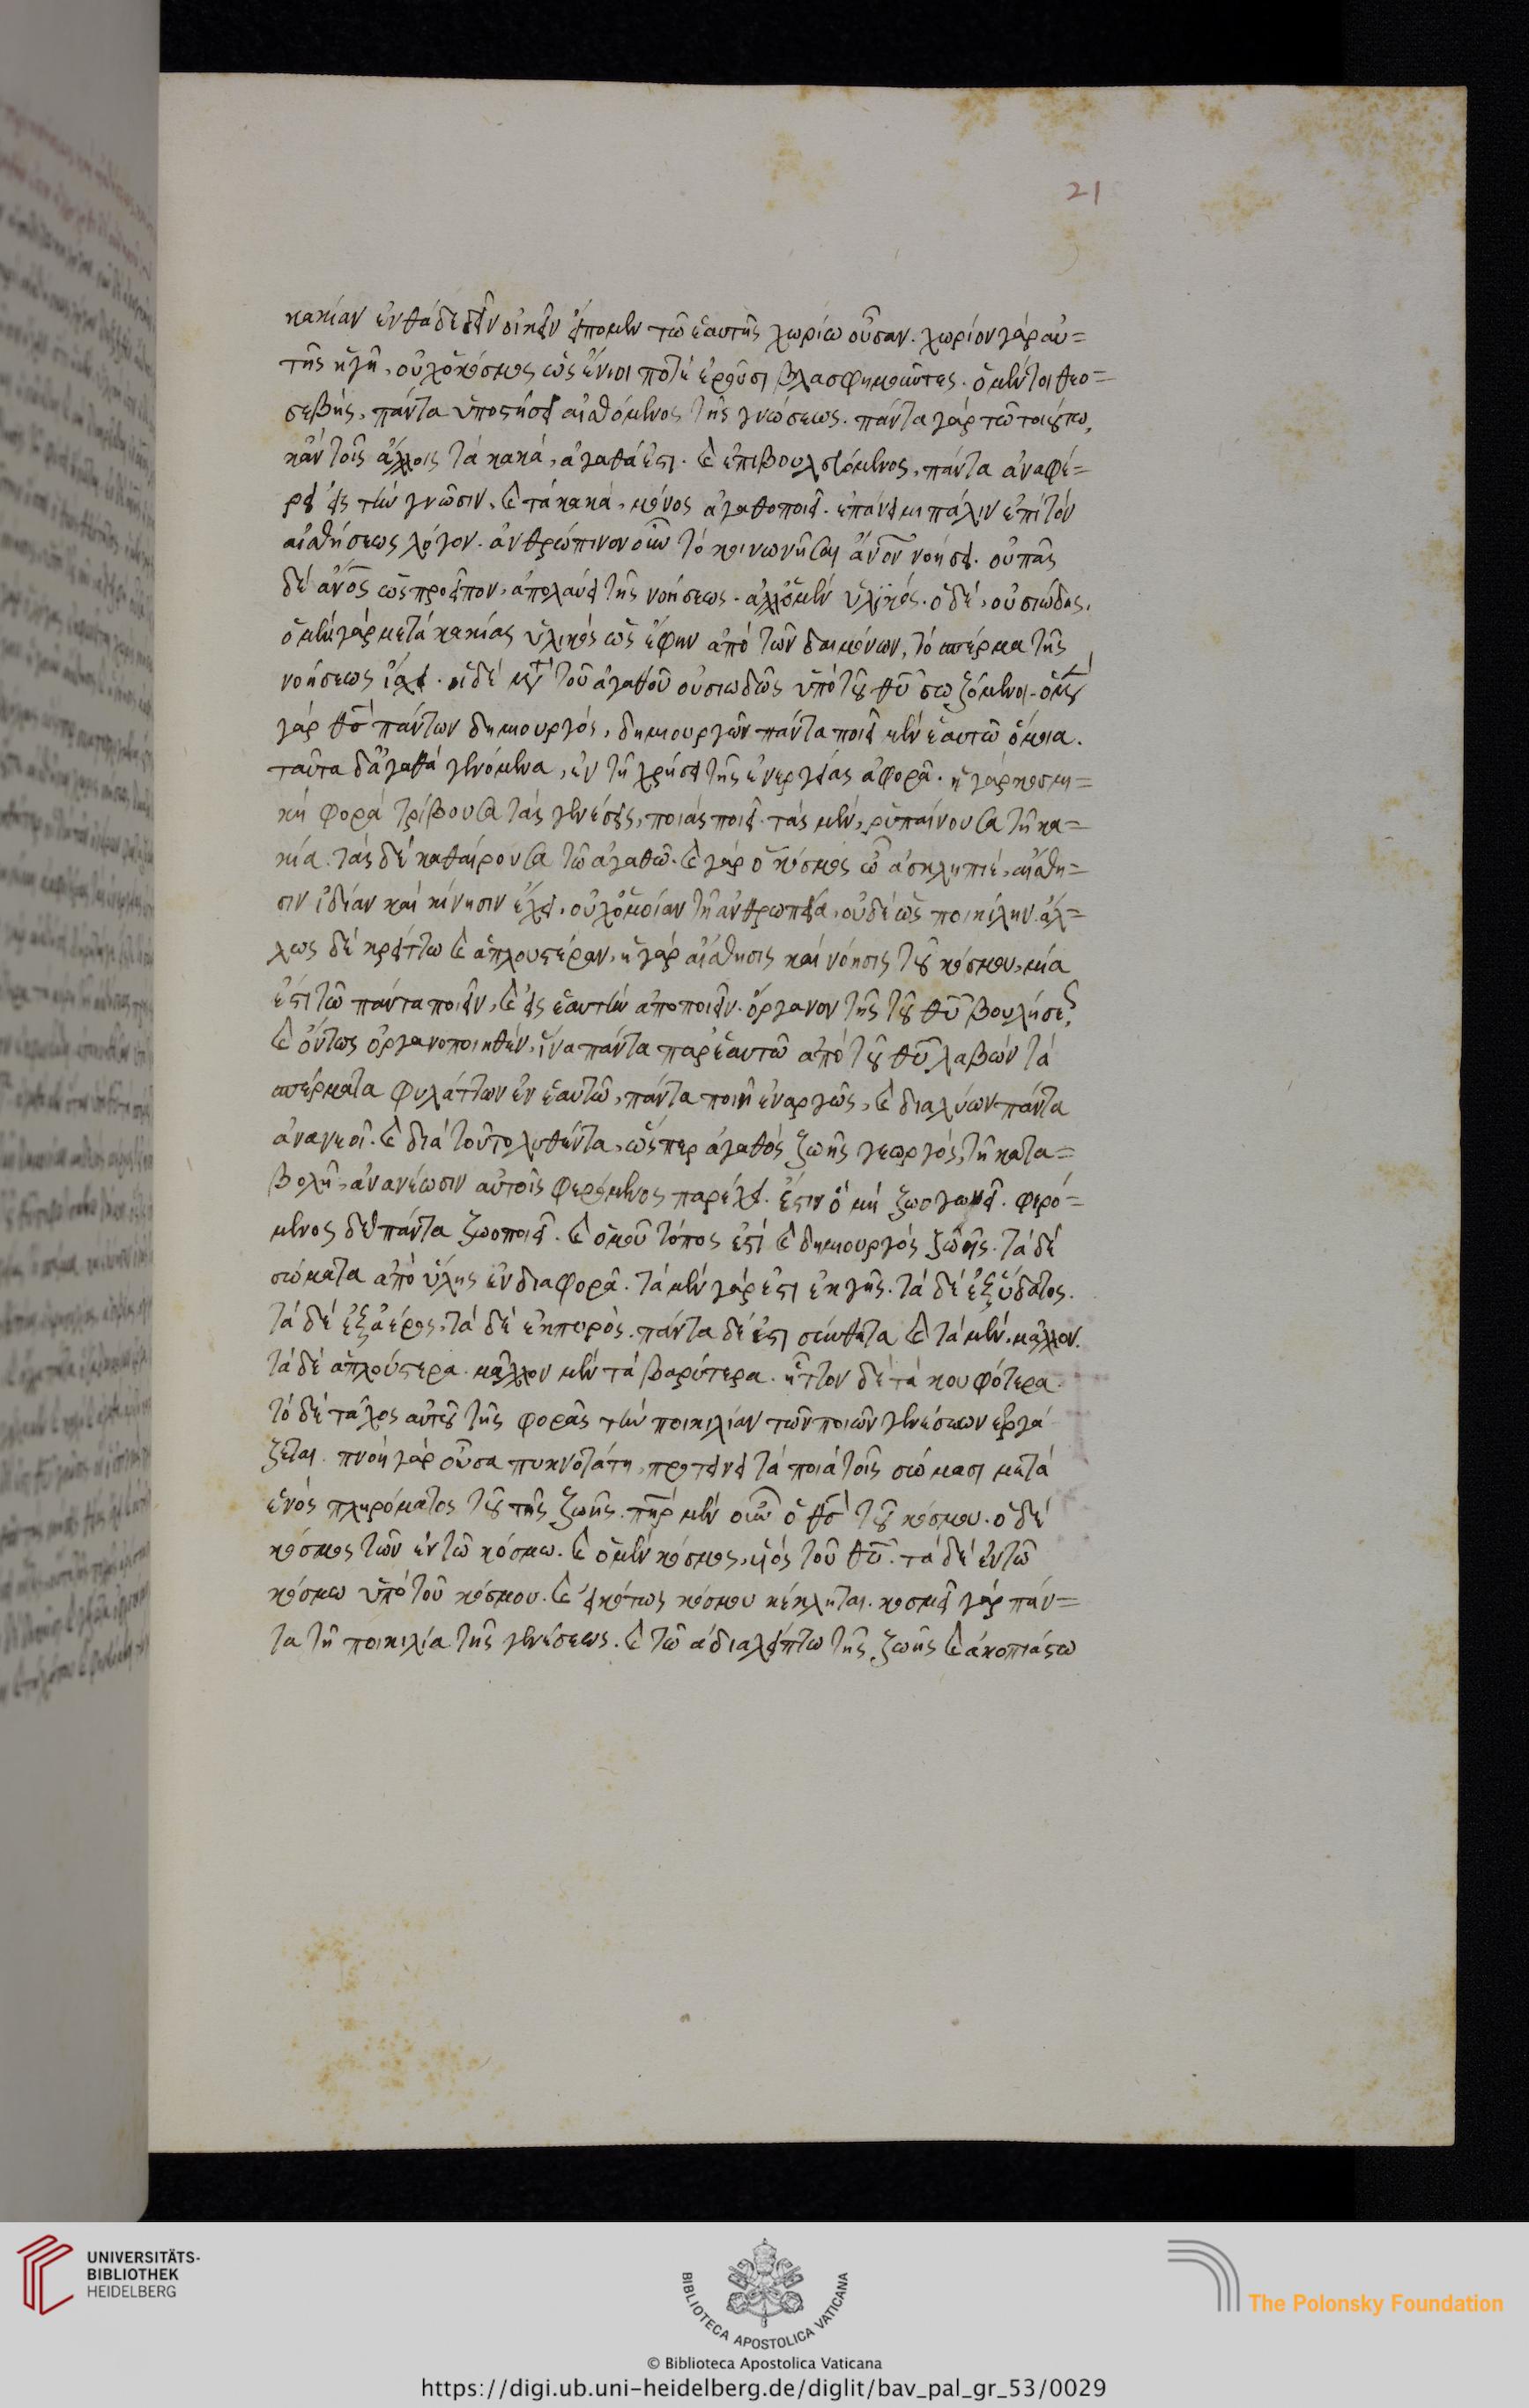 21
κακίαν ἐνθάδε δεῖν οἰκεῖν εἴπομεν τῷ ἑαυτῆς χωρίω οὖσαν. χωρίον γὰρ αὐ=
τῆς ἡ γῆ, οὐχ ὁ κόσμος ὡς ἔνιοί ποτε ἐροῦσι βλασφημοῦντες. ὁ μέντοι θεο=
σεβὴς, πάντα ὑποστήσει αἰσθόμενος τῆς γνώσεως. πάντα γὰρ τῷ τοιούτω,
κἂν τοῖς ἄλλοις τὰ κακὰ, ἀγαθά ἐστι. καὶ ἐπιβουλευόμενος, πάντα ἀναφέ=
ρει εἰς τὴν γνῶσιν. καὶ τὰ κακὰ, μόνος ἀγαθοποιεῖ. ἐπάνειμι πάλιν ἐπὶ τὸν
αἰσθήσεως λόγον. ἀνθρώπινον οὖν τὸ κοινωνῆσαι ἄνον νοήσει. οὐ πᾶς
δὲ ἄνος ὡς προεῖπον, ἀπολαύει τῆς νοήσεως. ἀλλ' ὁ μὲν ὑλικός. ὁ δὲ, οὐσιώδης.
ὁ μὲν γὰρ μετὰ κακίας ὑλικὸς ὡς ἔφην ἀπὸ τῶν δαιμόνων, τὸ σπέρμα τῆς
νοήσεως ἴσχει. οἱ δὲ μετὰ τοῦ ἀγαθοῦ οὐσιωδῶς ὑπὸ τοῦ θυ σωζόμενοι. ὁ μὲν
γὰρ θς πάντων δημιουργός, δημιουργῶν πάντα ποιεῖ μὲν ἑαυτῷ ὅμοια.
ταῦτα δ' ἀγαθὰ γενόμενα, ἐν τῇ χρήσει τῆς ἐνεργείας ἀφορᾶ. ἡ γὰρ κοσμι=
κὴ φορὰ τρίβουσα τὰς γενέσεις, ποιὰς ποιεῖ. τὰς μὲν, ῥυπαίνουσα τῇ κα=
κία. τὰς δὲ καθαίρουσα τῷ ἀγαθῷ. καὶ γὰρ ὁ κόσμος ὦ ἀσκληπιὲ, αἴσθη=
σιν ἰδίαν καὶ νόησιν ἔχει, οὐχ ὁμοίαν τῇ ἀνθρωπεία, οὐδὲ ὡς ποικίλην. ἄλ=
λως δὲ κρείττω καὶ ἁπλουστέραν, ἡ γὰρ αἴσθησις καὶ νόησις τοῦ κόσμου, μία
ἐστὶ τῷ πάντα ποιεῖν, καὶ εἰς ἑαυτὴν ἀποποιεῖν. ὄργανον τῆς τοῦ θυ βουλήσεως,
καὶ ὄντως ὀργανοποιηθὲν, ἵνα πάντα παρ' ἑαυτῷ ἀπὸ τοῦ θυ λαβὼν τὰ
σπέρματα φυλάττων ἐν ἑαυτῷ, πάντα ποιῇ ἐναργῶς, καὶ διαλύων πάντα
ἀνανεοῖ. καὶ διὰ τοῦτο λυθέντα, ὥσπερ ἀγαθὸς ζωῆς γεωργός, τῇ κατα=
βολῇ, ἀνανέωσιν αὐτοῖς φερόμενος παρέχει. ἔστιν ὃ μὴ ζωογονεῖ. φερό=
μενος δὲ πάντα ζωοποιεῖ. καὶ ὁμοῦ τόπος ἐστὶ καὶ δημιουργὸς ζωῆς. τὰ δὲ
σώματα ἀπὸ ὕλης ἐν διαφορᾶ. τὰ μὲν γάρ ἐστι ἐκ γῆς. τὰ δὲ ἐξ ὕδατος.
τὰ δὲ ἐξ ἀέρος, τὰ δὲ ἐκ πυρὸς. πάντα δέ ἐστι σύνθετα καὶ τὰ μὲν, μᾶλλον.
τὰ δὲ ἁπλούστερα. μᾶλλον μὲν τὰ βαρύτερα. ἧττον δὲ τὰ κουφότερα.
τὸ δὲ τάχος αὐτοῦ τῆς φορᾶς τὴν ποικιλίαν τῶν ποιῶν γενέσεων ἐργά
ζεται. πνοὴ γὰρ οὖσα πυκνοτάτη, προτείνει τὰ ποιὰ τοῖς σώμασι μετὰ
ἑνὸς πληρόματος τοῦ τῆς ζωῆς. πηρ μὲν οὖν ὁ θς τοῦ κόσμου. ὁ δὲ
κόσμος τῶν ἐν τῷ κόσμω. καὶ ὁ μὲν κόσμος, υἱὸς τοῦ θυ. τὰ δὲ ἐν τῷ
κόσμω ὑπὸ τοῦ κόσμου. καὶ εἰκότως κόσμου κέκληται. κοσμεῖ γὰρ πάν=
τα τῇ ποικιλία τῆς γενέσεως. καὶ τῷ ἀδιαλείπτω τῆς ζωῆς καὶ ἀκοπιάστω
UNIVERSITÄTS-
BIBLIOTHEK
HEIDELBERG
BIBLIOTECA APOSTOLICA VATICANA
The Polonsky Foundation
© Biblioteca Apostolica Vaticana
https://digi.ub.uni-heidelberg.de/diglit/bav_pal_gr_53/0029